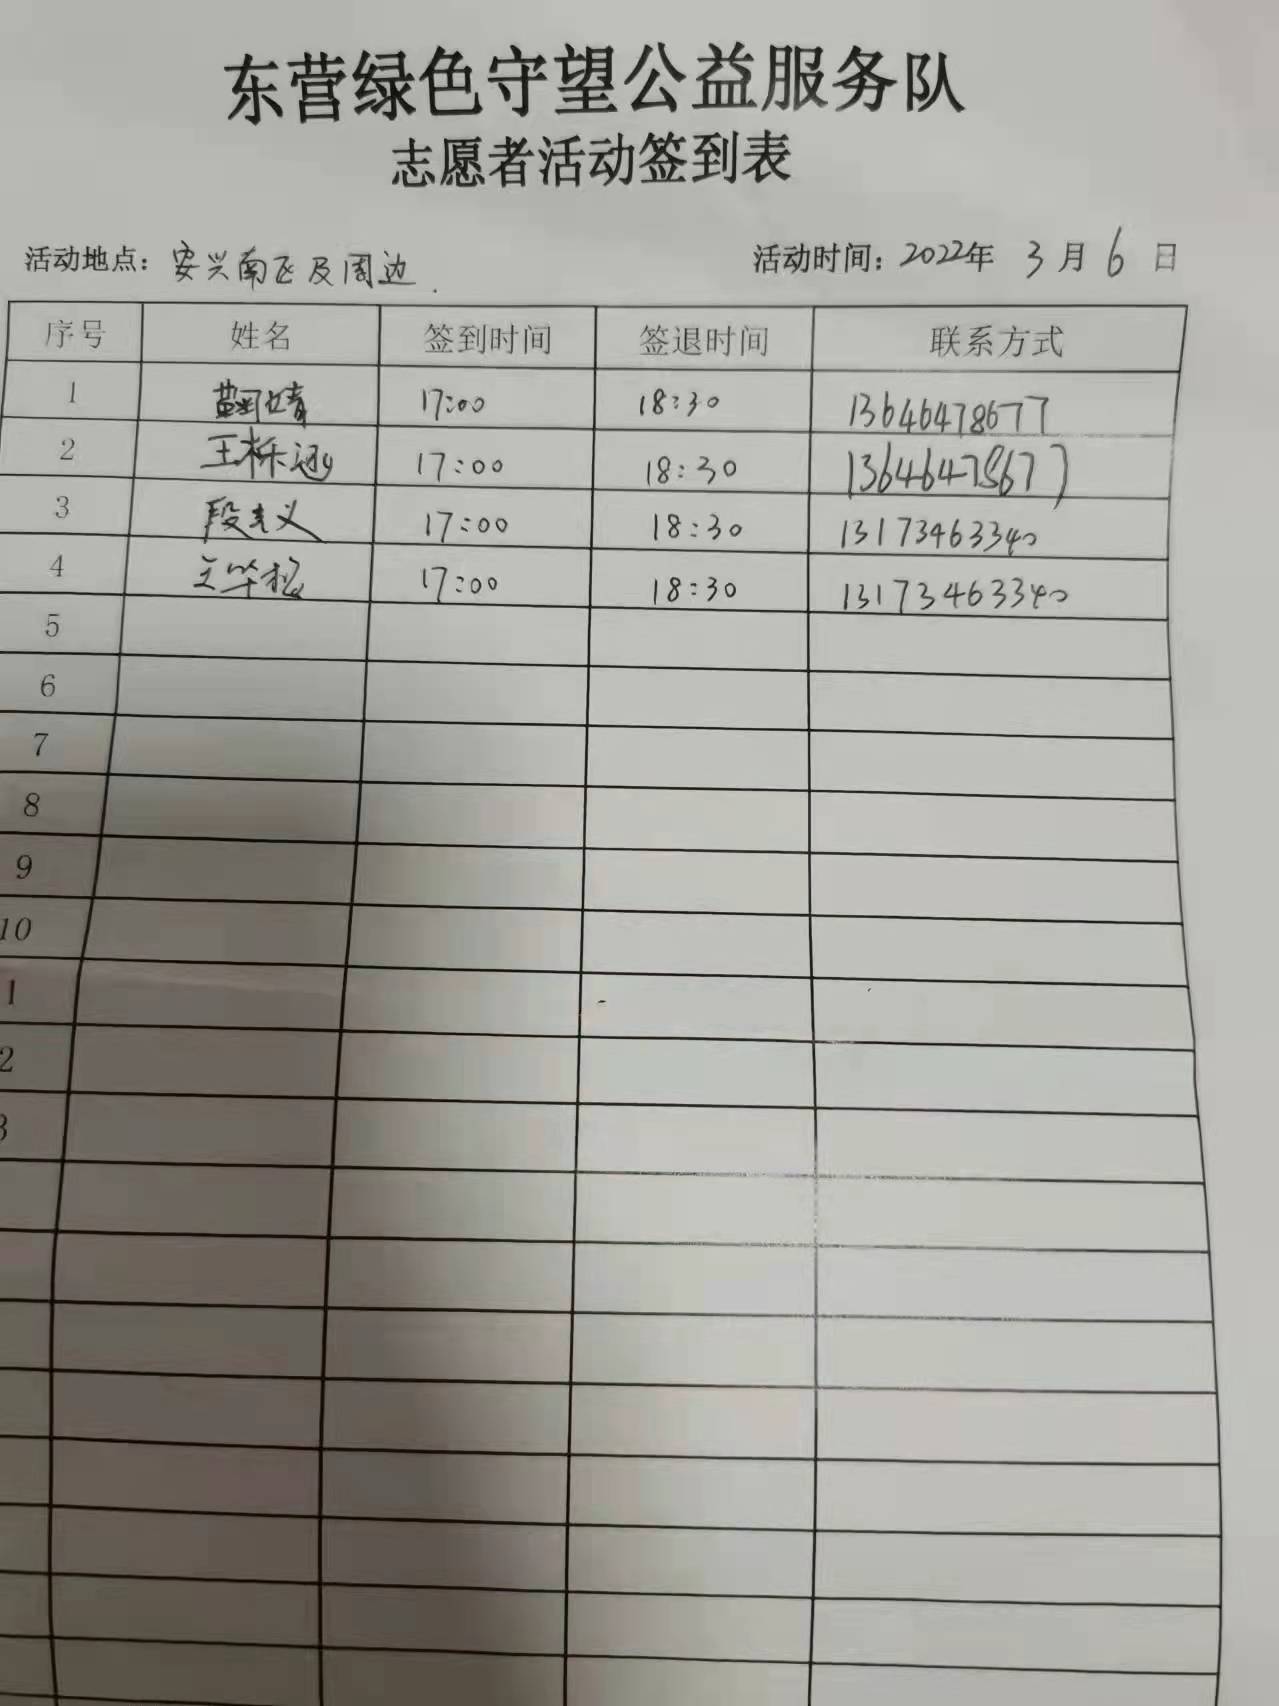 东营绿色守望公益服务队
志愿者活动签到表
活动地点：安兴南区及周边. 活动时间：2022年 3月 6日
序号 姓名 签到时间 签退时间 联系方式
1 17:00 18:30 13646478677
2 王栎逊 17:00 18:30 13646478677
3 段主义 17:00 18:30 13173463340
4 17:00 18:30 13173463340
5
6
7
8
9
10
1
2
3